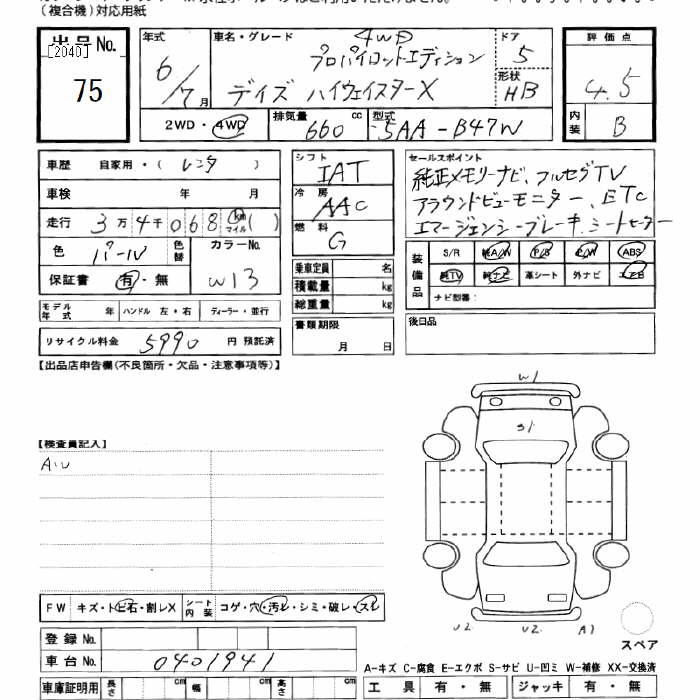 (複合機)対応用紙
出品No.
[2040]
75
年式
6/7月
車名・グレード
4WD
プロパイロットエディション
デイズ ハイウェイスターX
ドア
5
形状
HB
評価点
4.5
内装
B
2WD・4WD
排気量
660
cc
型式
5AA-B47W
車歴 自家用・( レンタ )
車検 年 月
走行 3万4千068 km マイル ( )
色 パール
色替
カラーNo.
W13
保証書 有・無
モデル年式 年 ハンドル 左・右 ディーラー・並行
リサイクル料金 5990 円 預託済
シフト
IAT
冷房
AAC
燃料
G
乗車定員 名
積載量 kg
総重量 kg
書類期限
月 日
セールスポイント
純正メモリーナビ、フルセグTV
アラウンドビューモニター、ETC
エマージェンシーブレーキ、シートヒーター
装備品
S/R 純A/W P/S P/W ABS
純TV 純ナビ 革シート 外ナビ エアB
ナビ型番:
後日品
【出品店申告欄(不良箇所・欠品・注意事項等)】
【検査員記入】
A.U
W1
S1
U2 U2 A1
スペア
FW キズ・トビ石・割レX
シート内装 コゲ・穴・汚レ・シミ・破レ・スレ
登録No.
車台No. 0401941
車庫証明用 長さ cm 幅 cm 高さ cm
A-キズ C-腐食 E-エクボ S-サビ U-凹ミ W-補修 XX-交換済
工具 有・無 ジャッキ 有・無